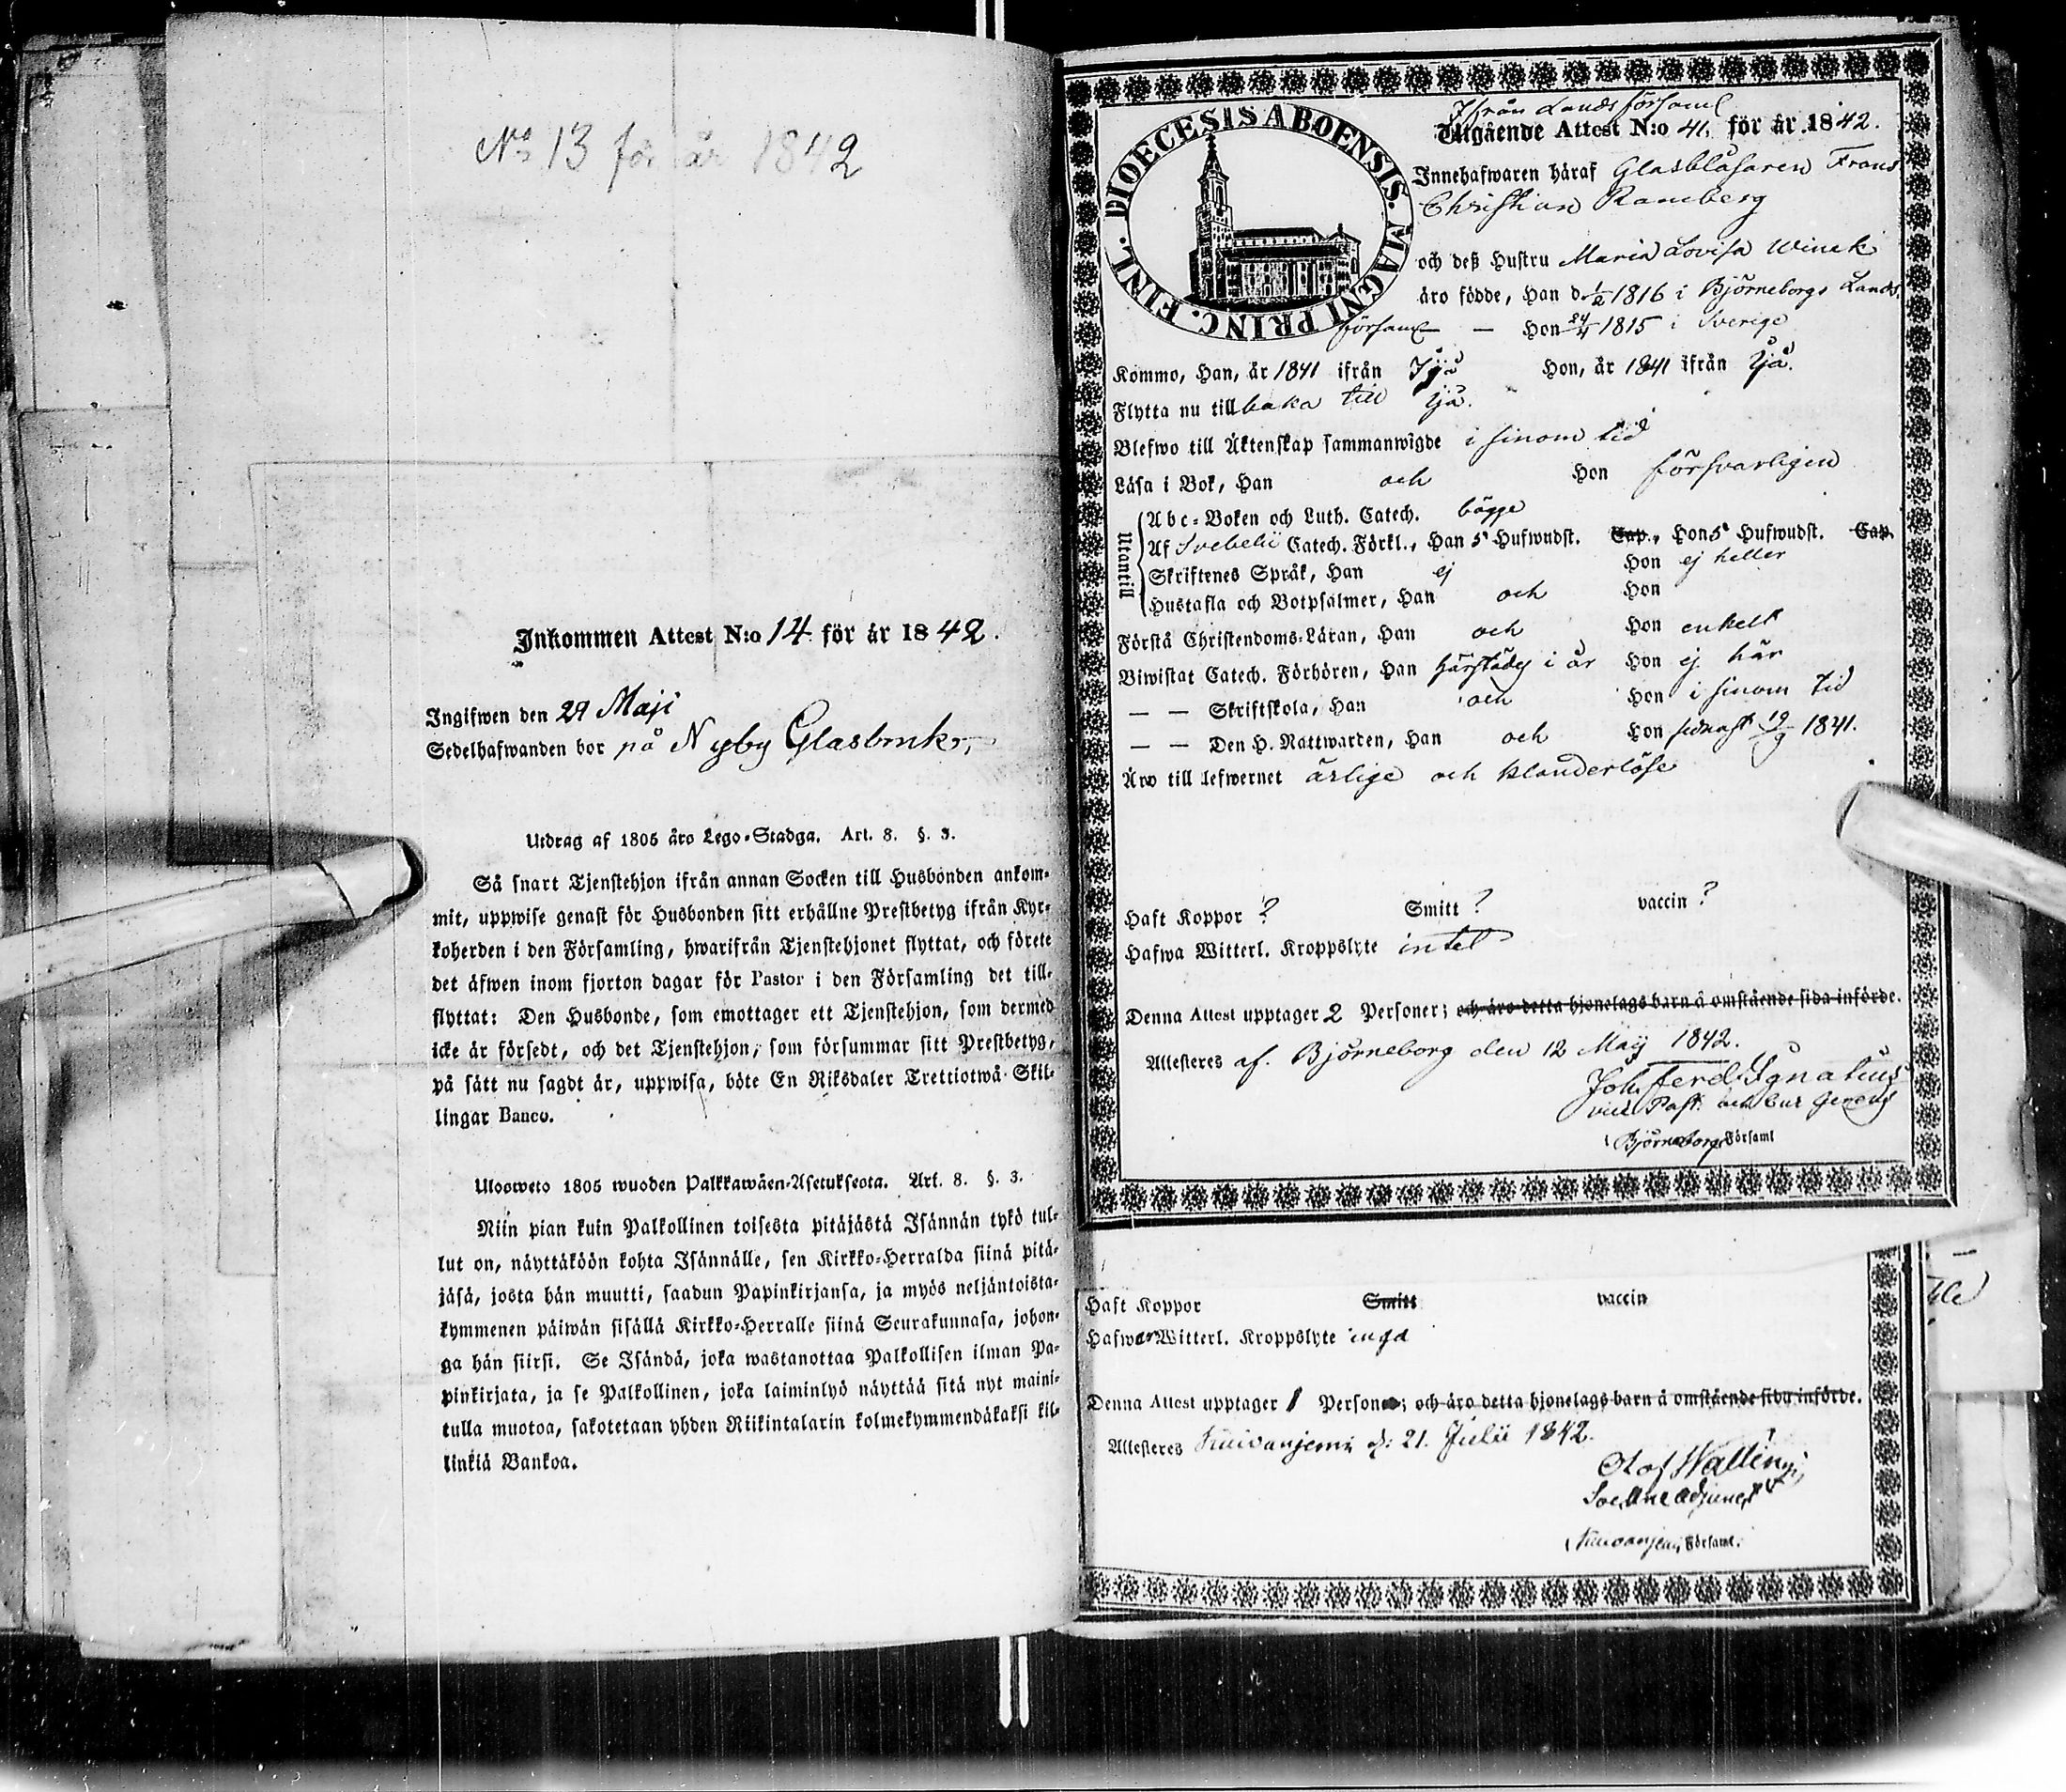 No 13 för år 1842
Inkommen Attest N:o 14 för år 1842.
Ingifwen den 29 Maji
Sedelhafwanden bor på Nyby Glasbruk
Utdrag af 1805 års Lego-Stadga. Art. 8. §. 3.
Så snart Tjenstehjon ifrån annan Socken till Husbonden ankom-
mit, uppwise genast för Husbonden sitt erhållne Prestbetyg ifrån Kyr-
koherden i den Församling, hwarifrån Tjenstehjonet flyttat, och förete
det äfwen inom fjorton dagar för Pastor i den Församling det till-
flyttat: Den Husbonde, som emottager ett Tjenstehjon, som dermed
icke är försedt, och det Tjenstehjon, som försummar sitt Prestbetyg,
på sätt nu sagdt är, uppwisa, böte En Riksdaler Trettiotwå Skil-
lingar Banco.
Ulosweto 1805 wuoden Palkkawäen-Asetuksesta. Art. 8. §. 3.
Niin pian kuin Palkollinen toisesta pitäjästä Isännän tykö tul-
lut on, näyttäköön kohta Isännälle, sen Kirkko-Herralda siinä pitä-
jäsä, josta hän muutti, saadun Papinkirjansa, ja myös neljäntoista-
kymmenen päiwän sisällä Kirkko-Herralle siinä Seurakunnasa, johon-
ga hän siirsi. Se Isändä, joka wastanottaa Palkollisen ilman Pa-
pinkirjata, ja se Palkollinen, joka laiminlyö näyttää sitä nyt maini-
tulla muotoa, sakotetaan yhden Riikintalarin kolmekymmendäkaksi kil-
linkiä Bankoa.
DIOECESIS ABOENSIS. MAGNI PRINC. FINL.
Ifrån Lands församl
Utgående Attest N:o 41. för år 1842.
Innehafwaren häraf Glasblåsaren Frans
Christian Ramberg
och deß Hustru Maria Lovisa Winck
äro födde, Han d. 1816 i Björneborgs Lands
församl — Hon 24/4 1815 i Sverige
Kommo, Han, år 1841 ifrån Ijå Hon, år 1841 ifrån Ijå.
Flytta nu tillbaka till Ijå.
Blefwo till Äktenskap sammanwigde i sinom tid
Läsa i Bok, Han och Hon försvarligen
Utantill
Abc-Boken och Luth. Catech. bägge
Af Svebelii Catech. Förkl., Han 5 Hufwudst. Cap., Hon 5 Hufwudst. Cap.
Skriftenes Språk, Han ej Hon ej heller
Hustafla och Botpsalmer, Han och Hon
Förstå Christendoms-Läran, Han och Hon enkelt
Biwistat Catech. Förhören, Han härstädes i år Hon ej här
— — Skriftskola, Han och Hon i sinom tid
— — Den H. Nattwarden, Han och Hon sednast 19/9 1841.
Äro till lefwernet ärlige och klanderlöse
Haft Koppor ? Smitt ? vaccin ?
Hafwa Witterl. Kroppslyte intet
Denna Attest upptager 2 Personer; och äro detta hjonelags barn å omstående sida införde.
Attesteras af. Björneborg den 12 Maij 1842.
Joh. Ferd. Ignatius
vice Past.
Björneborgs Församl
Haft Koppor Smitt vaccin
Hafwer Witterl. Kroppslyte inga
Denna Attest upptager 1 Person; och äro detta hjonelags barn å omstående sida införde.
Attesteras Kuivaniemi d: 21. Julii 1842.
Olof Wallin
Kuivaniemi Församl.